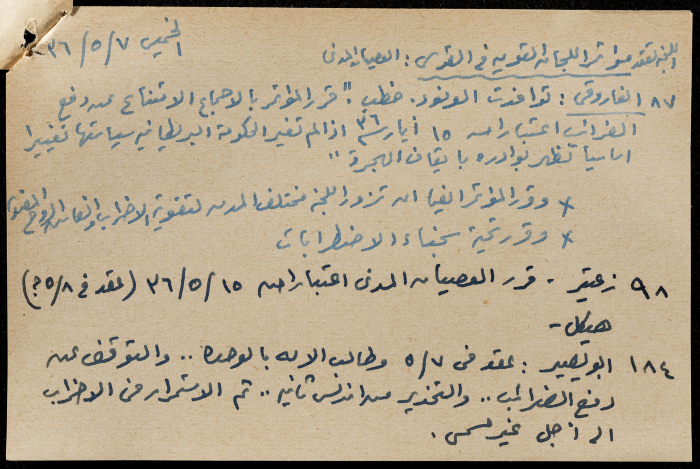 الخميس ٣٦/٥/٧
اللجنة تعقد مؤتمر اللجان القومية في القدس : العصيان المدني
٨٧ الفاروقي : توافدت الوفود. خطب : "قرر المؤتمر بالاجماع الامتناع عن دفع
الضرائب اعتبارا من ١٥ أيار ٣٦ اذا لم تغير الحكومة البريطانية سياستها تغييرا
اساسيا تظهر بوادره بايقاف الهجرة"
× وقرر المؤتمر ايضا ان تزور اللجنة مختلف المدن لتقوية الاضراب وانعاش الروح
× وقرر تحية سجناء الاضطرابات
٩٨ زعيتر - قرر العصيان المدني اعتبارا من ٣٦/٥/١٥ (عقد في ٥/٨ ؟)
هيكل -
١٨٤ ابو يصير : عقد في ٥/٧ وطالب الامة بالوحدة .. والتوقف عن
دفع الضرائب .. والتحذير من اندلس ثانية .. ثم الاستمرار في الاضراب
الى أجل غير مسمى .